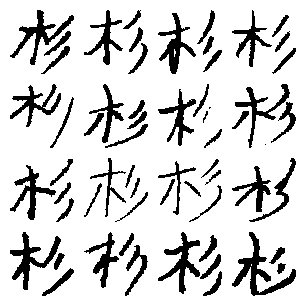 杉杉杉杉
杉杉杉杉
杉杉杉杉
杉杉杉杉